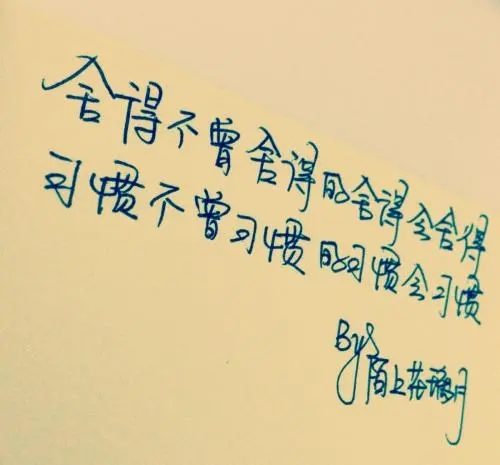 舍得不曾舍得的舍得会舍得
习惯不曾习惯的习惯会习惯
By 陌上花